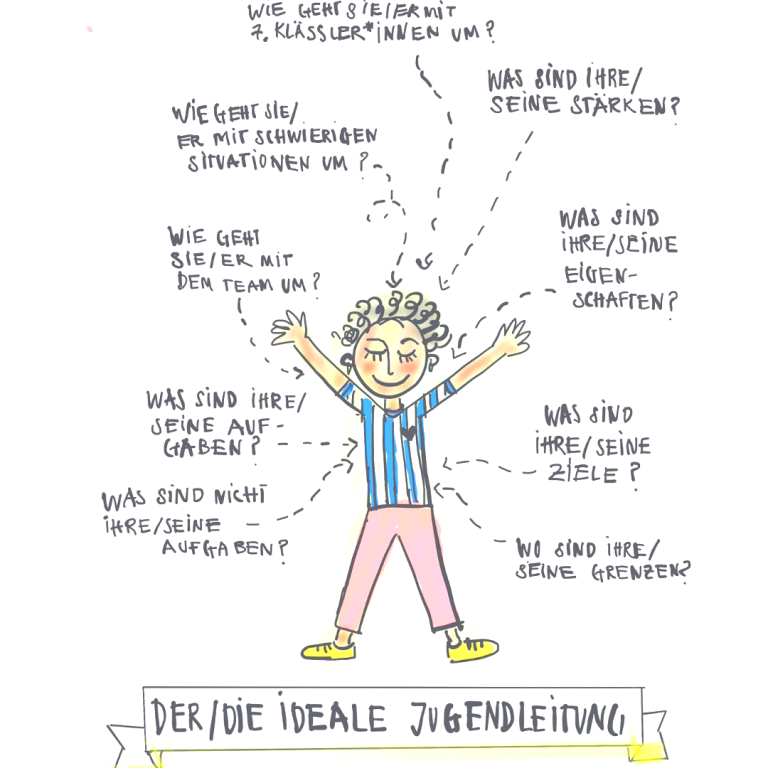 WIE GEHT SIE/ER MIT
7. KLÄSSLER*INNEN UM?
WAS SIND IHRE/
SEINE STÄRKEN?
WIE GEHT SIE/
ER MIT SCHWIERIGEN
SITUATIONEN UM?
WAS SIND
IHRE/SEINE
EIGEN-
SCHAFTEN?
WIE GEHT
SIE/ER MIT
DEM TEAM UM?
WAS SIND IHRE/
SEINE AUF-
GABEN?
WAS SIND
IHRE/SEINE
ZIELE?
WAS SIND NICHT
IHRE/SEINE
AUFGABEN?
WO SIND IHRE/
SEINE GRENZEN?
DER/DIE IDEALE JUGENDLEITUNG